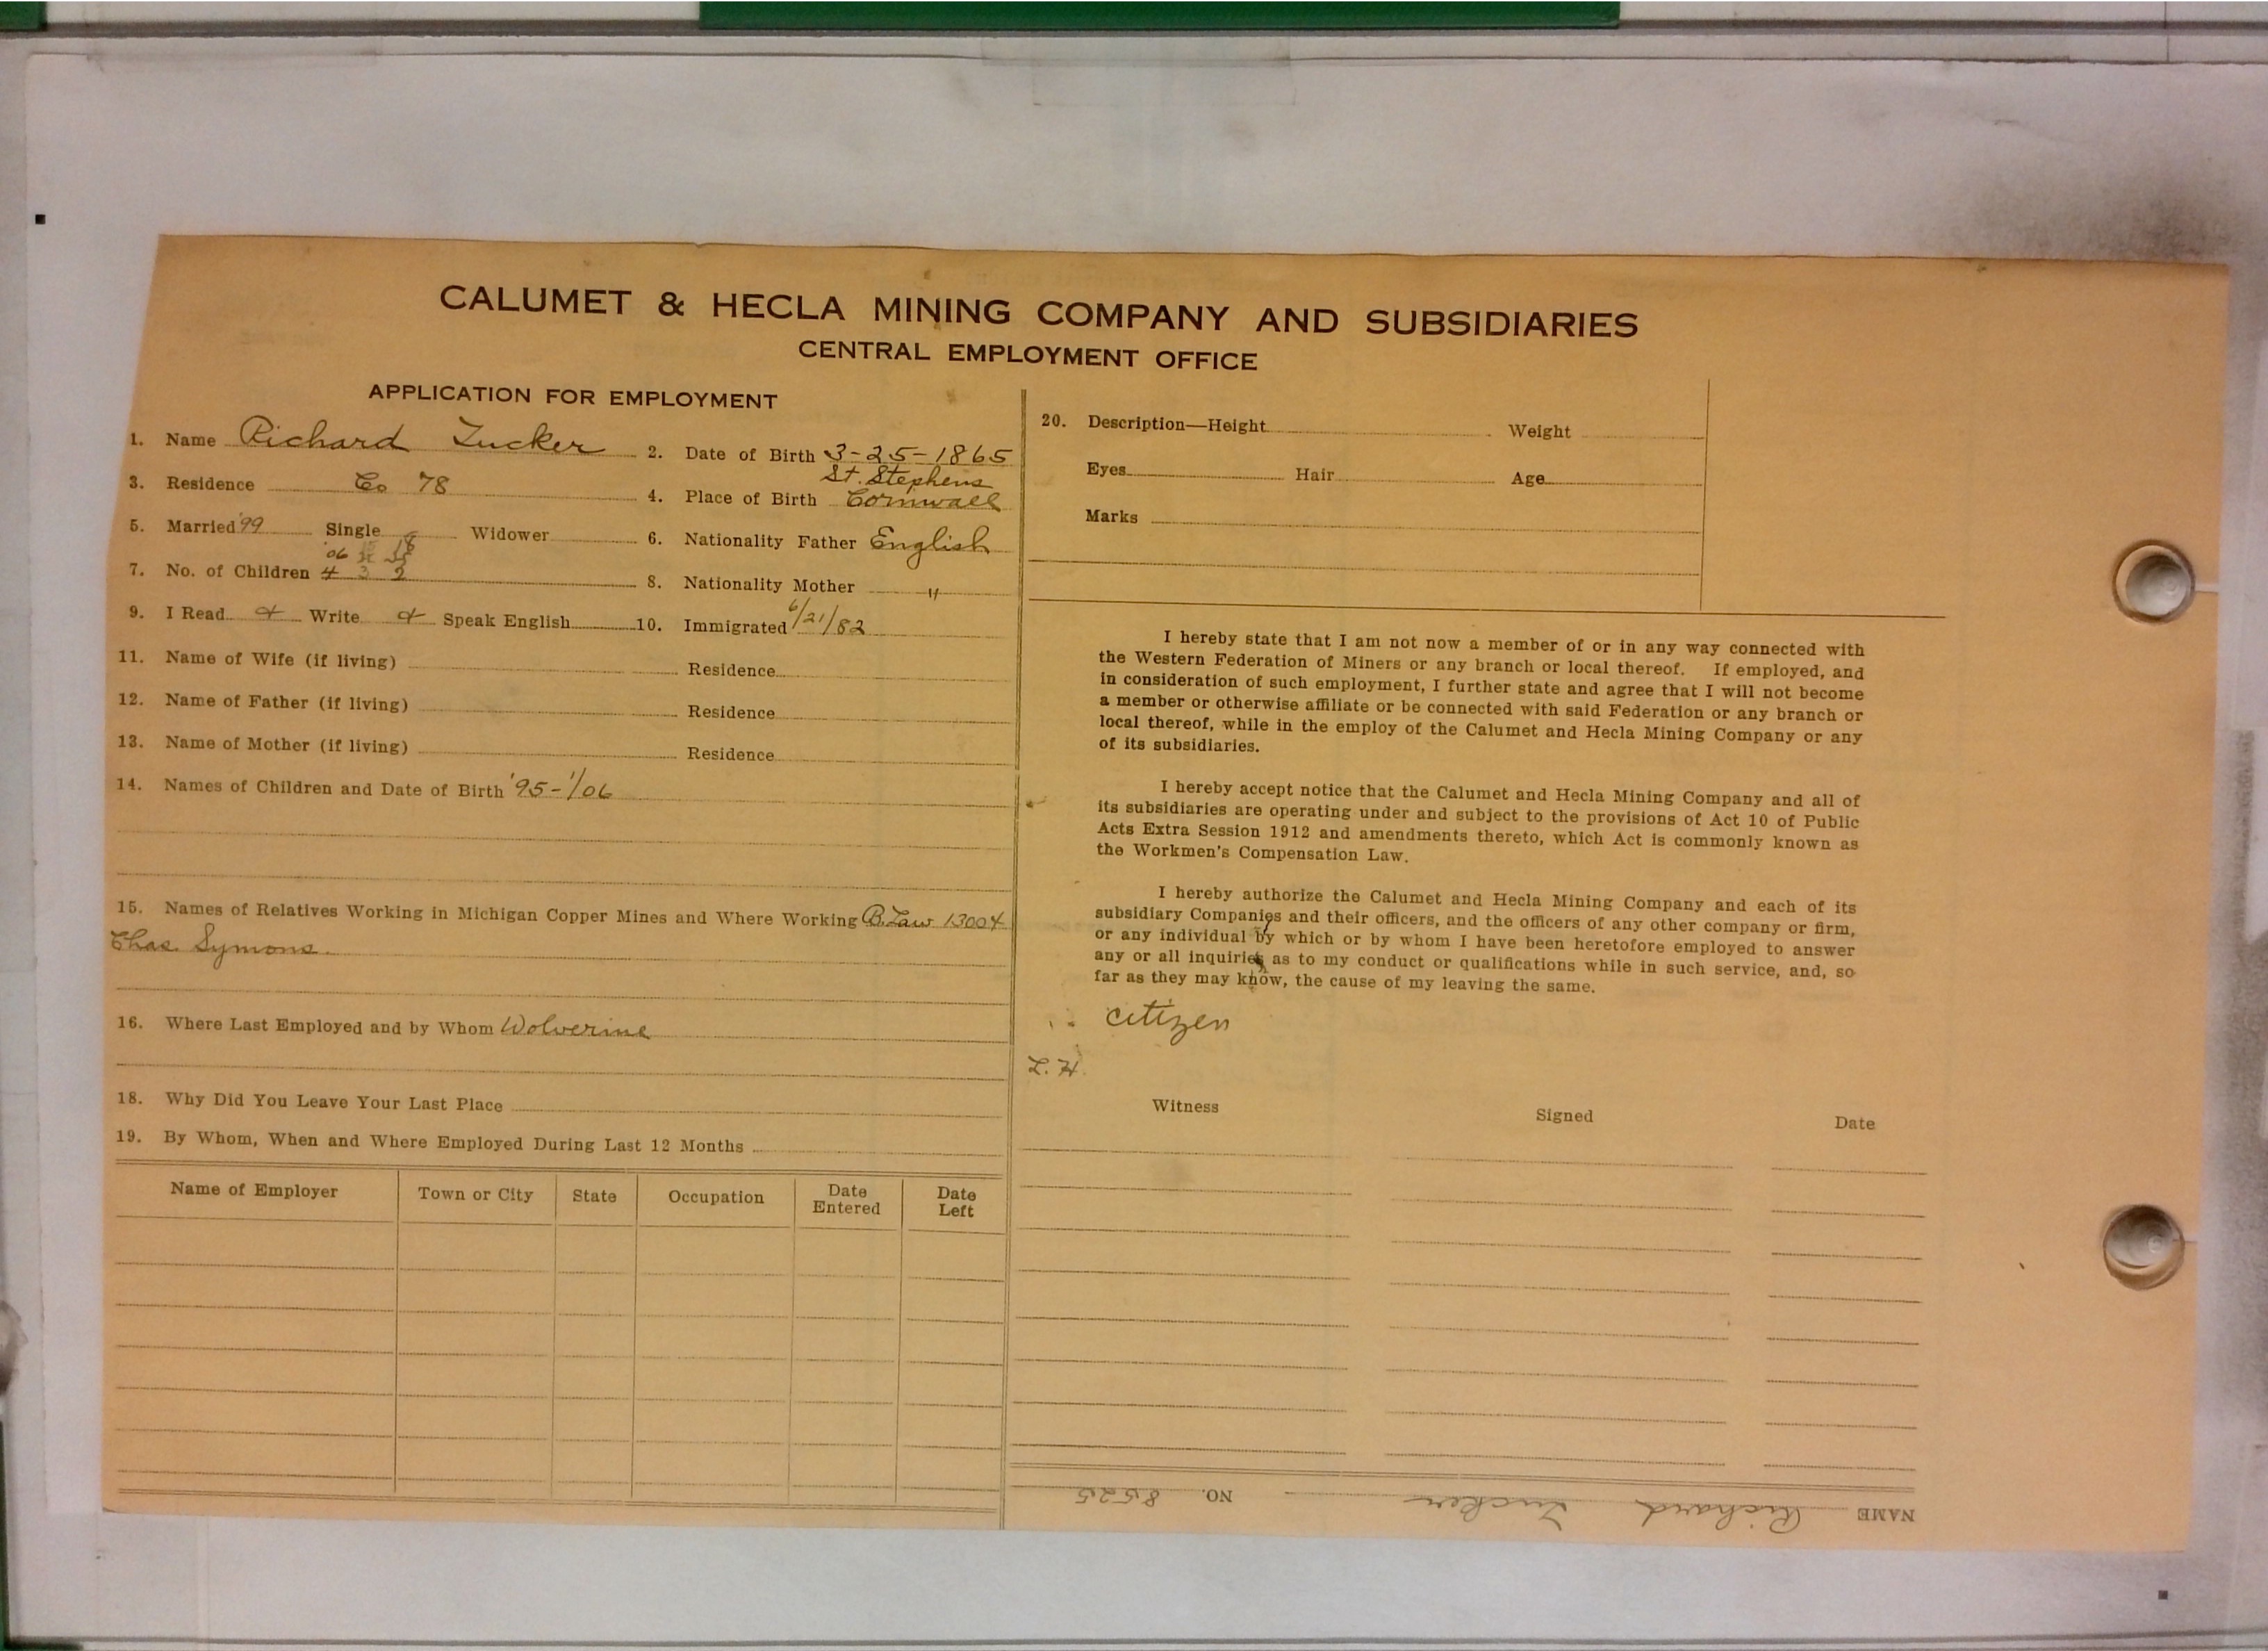 CALUMET & HECLA MINING COMPANY AND SUBSIDIARIES
CENTRAL EMPLOYMENT OFFICE
APPLICATION FOR EMPLOYMENT
1. Name Richard Tucker 2. Date of Birth 3-25-1865
3. Residence Co 78 4. Place of Birth St. Stephens Cornwall
5. Married '99 Single Widower 6. Nationality Father English
'06 18
7. No. of Children 4 3 2 8. Nationality Mother "
9. I Read & Write & Speak English 10. Immigrated 6/21/82
11. Name of Wife (if living) Residence
12. Name of Father (if living) Residence
13. Name of Mother (if living) Residence
14. Names of Children and Date of Birth '95-1/06
15. Names of Relatives Working in Michigan Copper Mines and Where Working B. Law 13004
Chas. Symons
16. Where Last Employed and by Whom Wolverine
18. Why Did You Leave Your Last Place
19. By Whom, When and Where Employed During Last 12 Months
Name of Employer Town or City State Occupation Date Entered Date Left
20. Description—Height Weight
Eyes Hair Age
Marks
I hereby state that I am not now a member of or in any way connected with
the Western Federation of Miners or any branch or local thereof. If employed, and
in consideration of such employment, I further state and agree that I will not become
a member or otherwise affiliate or be connected with said Federation or any branch or
local thereof, while in the employ of the Calumet and Hecla Mining Company or any
of its subsidiaries.
I hereby accept notice that the Calumet and Hecla Mining Company and all of
its subsidiaries are operating under and subject to the provisions of Act 10 of Public
Acts Extra Session 1912 and amendments thereto, which Act is commonly known as
the Workmen's Compensation Law.
I hereby authorize the Calumet and Hecla Mining Company and each of its
subsidiary Companies and their officers, and the officers of any other company or firm,
or any individual by which or by whom I have been heretofore employed to answer
any or all inquiries as to my conduct or qualifications while in such service, and, so
far as they may know, the cause of my leaving the same.
citizen
L. H.
Witness Signed Date
NAME Richard Tucker NO. 8525